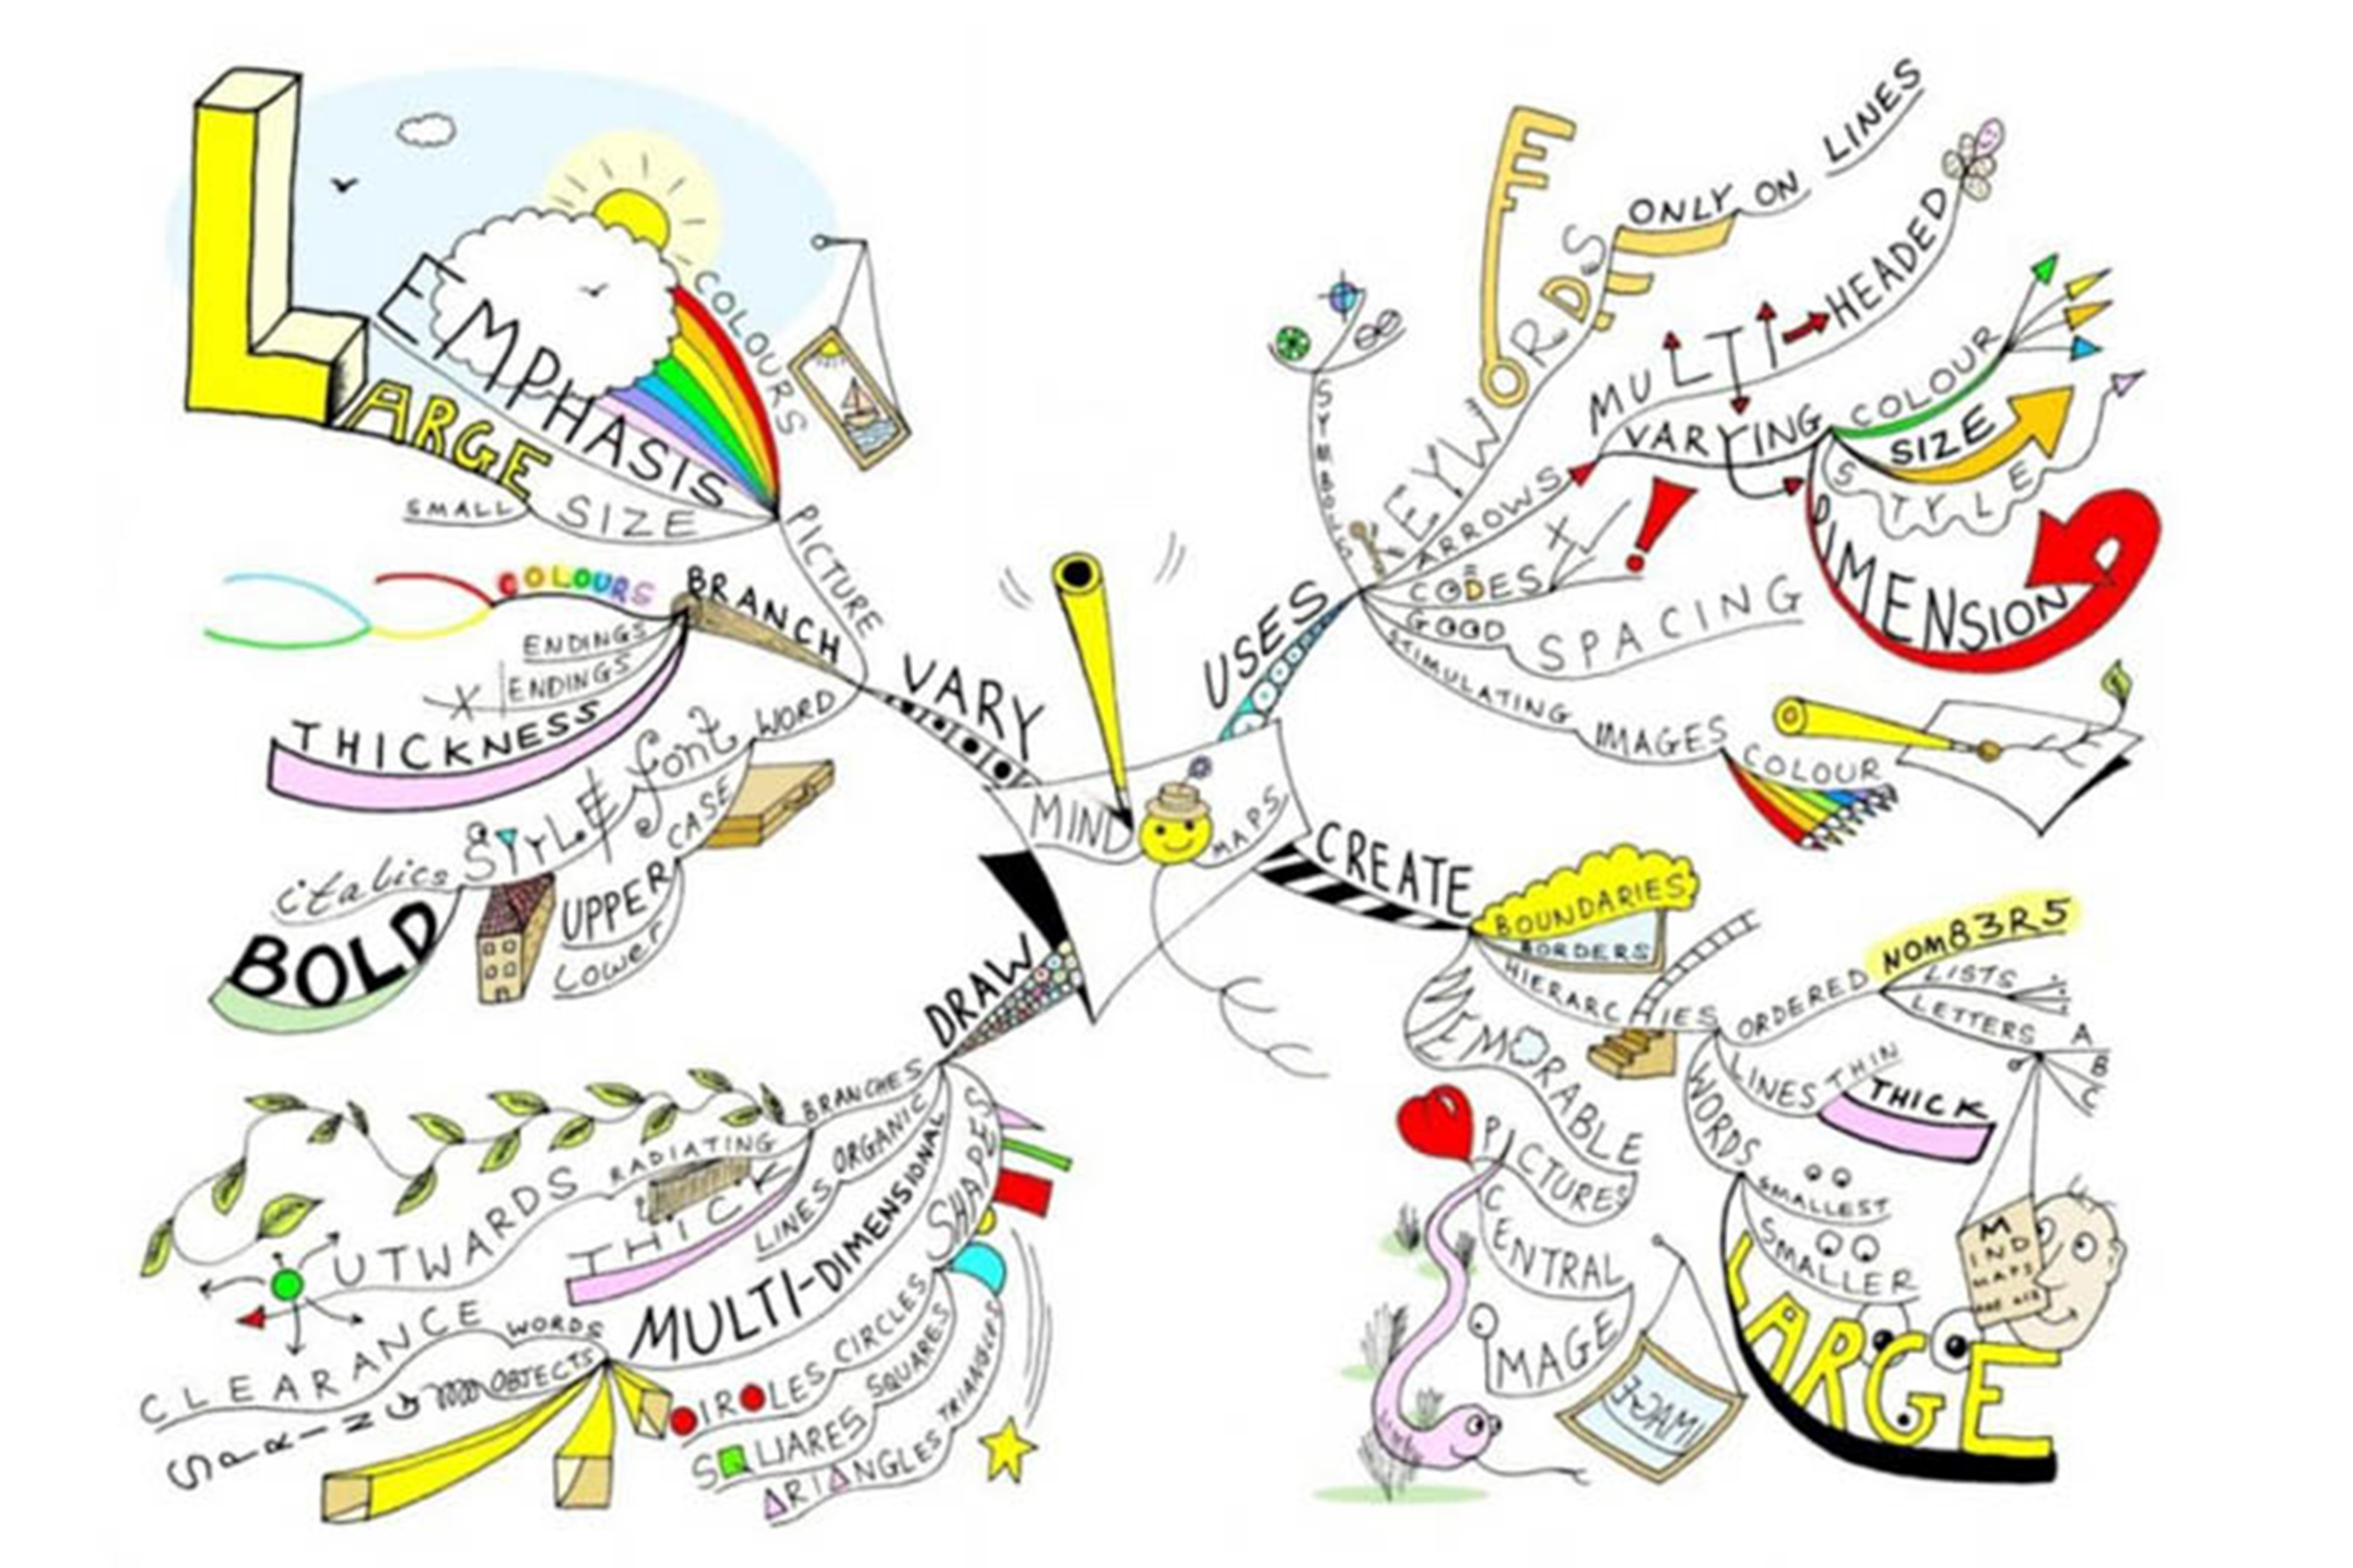 MIND MAPS
USES
SYMBOLS
KEYWORDS
ONLY ON LINES
ARROWS
MULTI HEADED
VARYING
COLOUR
SIZE
STYLE
DIMENSION
CODES
GOOD SPACING
STIMULATING IMAGES
COLOUR
CREATE
BOUNDARIES
BORDERS
HIERARCHIES
ORDERED
NOM83R5
LISTS
LETTERS
A
B
C
LINES
THIN
THICK
WORDS
SMALLEST
SMALLER
LARGE
M
IND
MAPS
MEMORABLE
PICTURES
CENTRAL
IMAGE
IMAGE
DRAW
BRANCHES
RADIATING
OUTWARDS
THICK
LINES ORGANIC
MULTI-DIMENSIONAL
WORDS
CLEARANCE
OBJECTS
SPRING
SHAPES
CIRCLES
CIRCLES
SQUARES
SQUARES
TRIANGLES
TRIANGLES
VARY
PICTURE
COLOURS
EMPHASIS
SIZE
LARGE
SMALL
BRANCH
COLOURS
ENDINGS
ENDINGS
THICKNESS
WORD
font
STYLE
italics
BOLD
CASE
UPPER
Lower